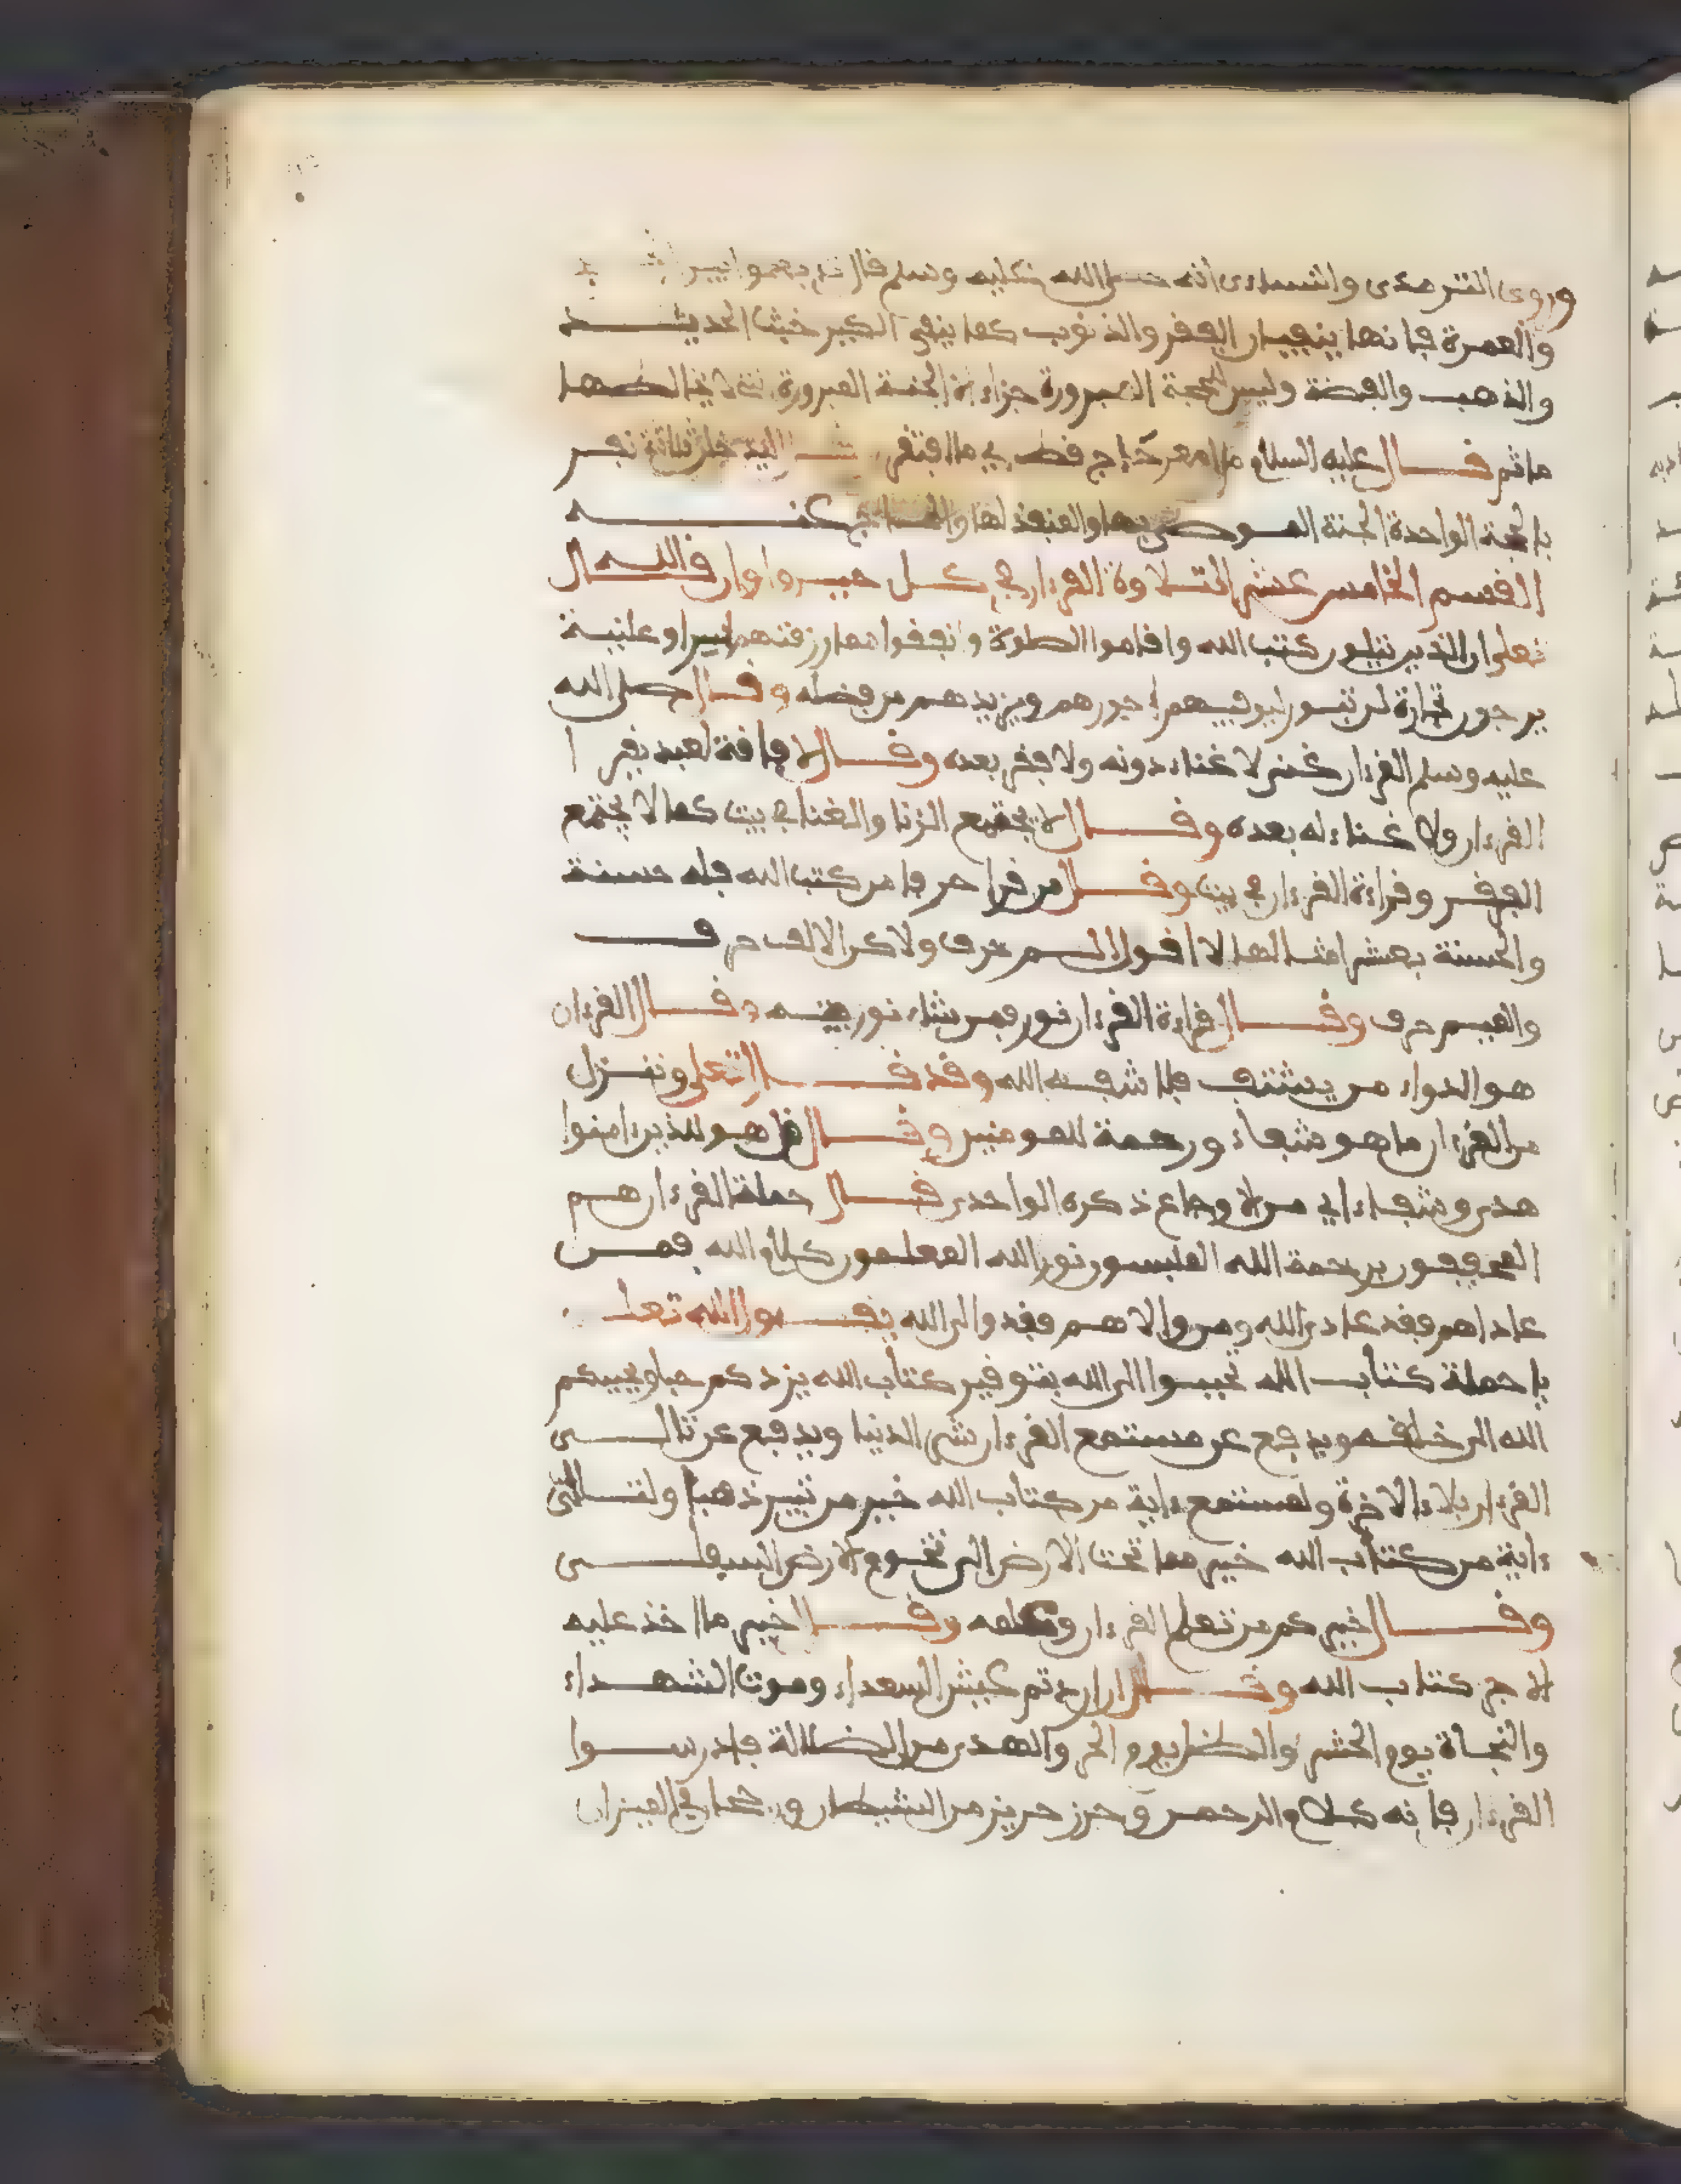 وروى الترمذى والنساءى انه صلى الله عليه وسلم قال
والعمرة فإنهما ينفيان الفقر والذنوب كما ينفى الكير خبث الحديد
والذهب والفضة وليس للحجة المبرورة جزاء الجنة المبرورة
ما ثم قال عليه السلام ما امعر حاج قط اي ما افتقر ثلاثة نفر
بالحجة الواحدة الجنة الموصى بها والمنفذ لها والحاج عنه
القسم الخامس عشر التلاوة القرءان في كل حين واوان قال الله
تعلى ان الذين يتلون كتب الله واقاموا الصلوة وانفقوا مما رزقنهم سرا وعلنية
يرجون تجارة لن تبور ليوفيهم اجورهم ويزيدهم من فضله وقال صلى الله
عليه وسلم القرءان غنى لا غناء دونه ولا فقر بعده وقال لا فاقة لعبد يقرا
القرءان ولا غناء له بعده وقال لا يجتمع الزنا والغنا في بيت كما لا يجتمع
الفقر وقراءة القرءان في بيت وقال من قرا حرفا من كتب الله فله حسنة
والحسنة بعشر امثالها لا اقول الم حرف ولاكن الالف حرف
والميم حرف وقال قراءة القرءان نور فمن شاء نور بيته وقال القرءان
هو الدواء من يستشف فلا شفه الله وقد قال تعلى وننزل
من القرءان ما هو شفاء ورحمة للمومنين وقال قل هو للذين ءامنوا
هدى وشفاء اي من الاوجاع ذكره الواحدى قال حملة القرءان هم
المحفوفون برحمة الله الملبسون نور الله المعلمون كلام الله فمن
عاداهم فقد عادى الله ومن والاهم فقد والى الله يقول الله تعلى
يا حملة كتاب الله تحببوا الى الله بتوقير كتاب الله يزدكم حبا ويحببكم
الله الى خلقه ويدفع عن مستمع القرءان شر الدنيا ويدفع عن تالى
القرءان بلاء الاخرة ولمستمع ءاية من كتاب الله خير من ثبير ذهبا ولتالى
ءاية من كتاب الله خير مما تحت الارض الى تخوم الارض السفلى
وقال خيركم من تعلم القرءان وعلمه وقال خير ما اخذ عليه
الاجر كتاب الله وقال ان اردتم عيش السعداء وموت الشهداء
والنجاة يوم الحشر والظل يوم الحر والهدى من الضلالة فادرسوا
القرءان فإنه كلام الرحمن وحرز حريز من الشيطان ورجحان في الميزان